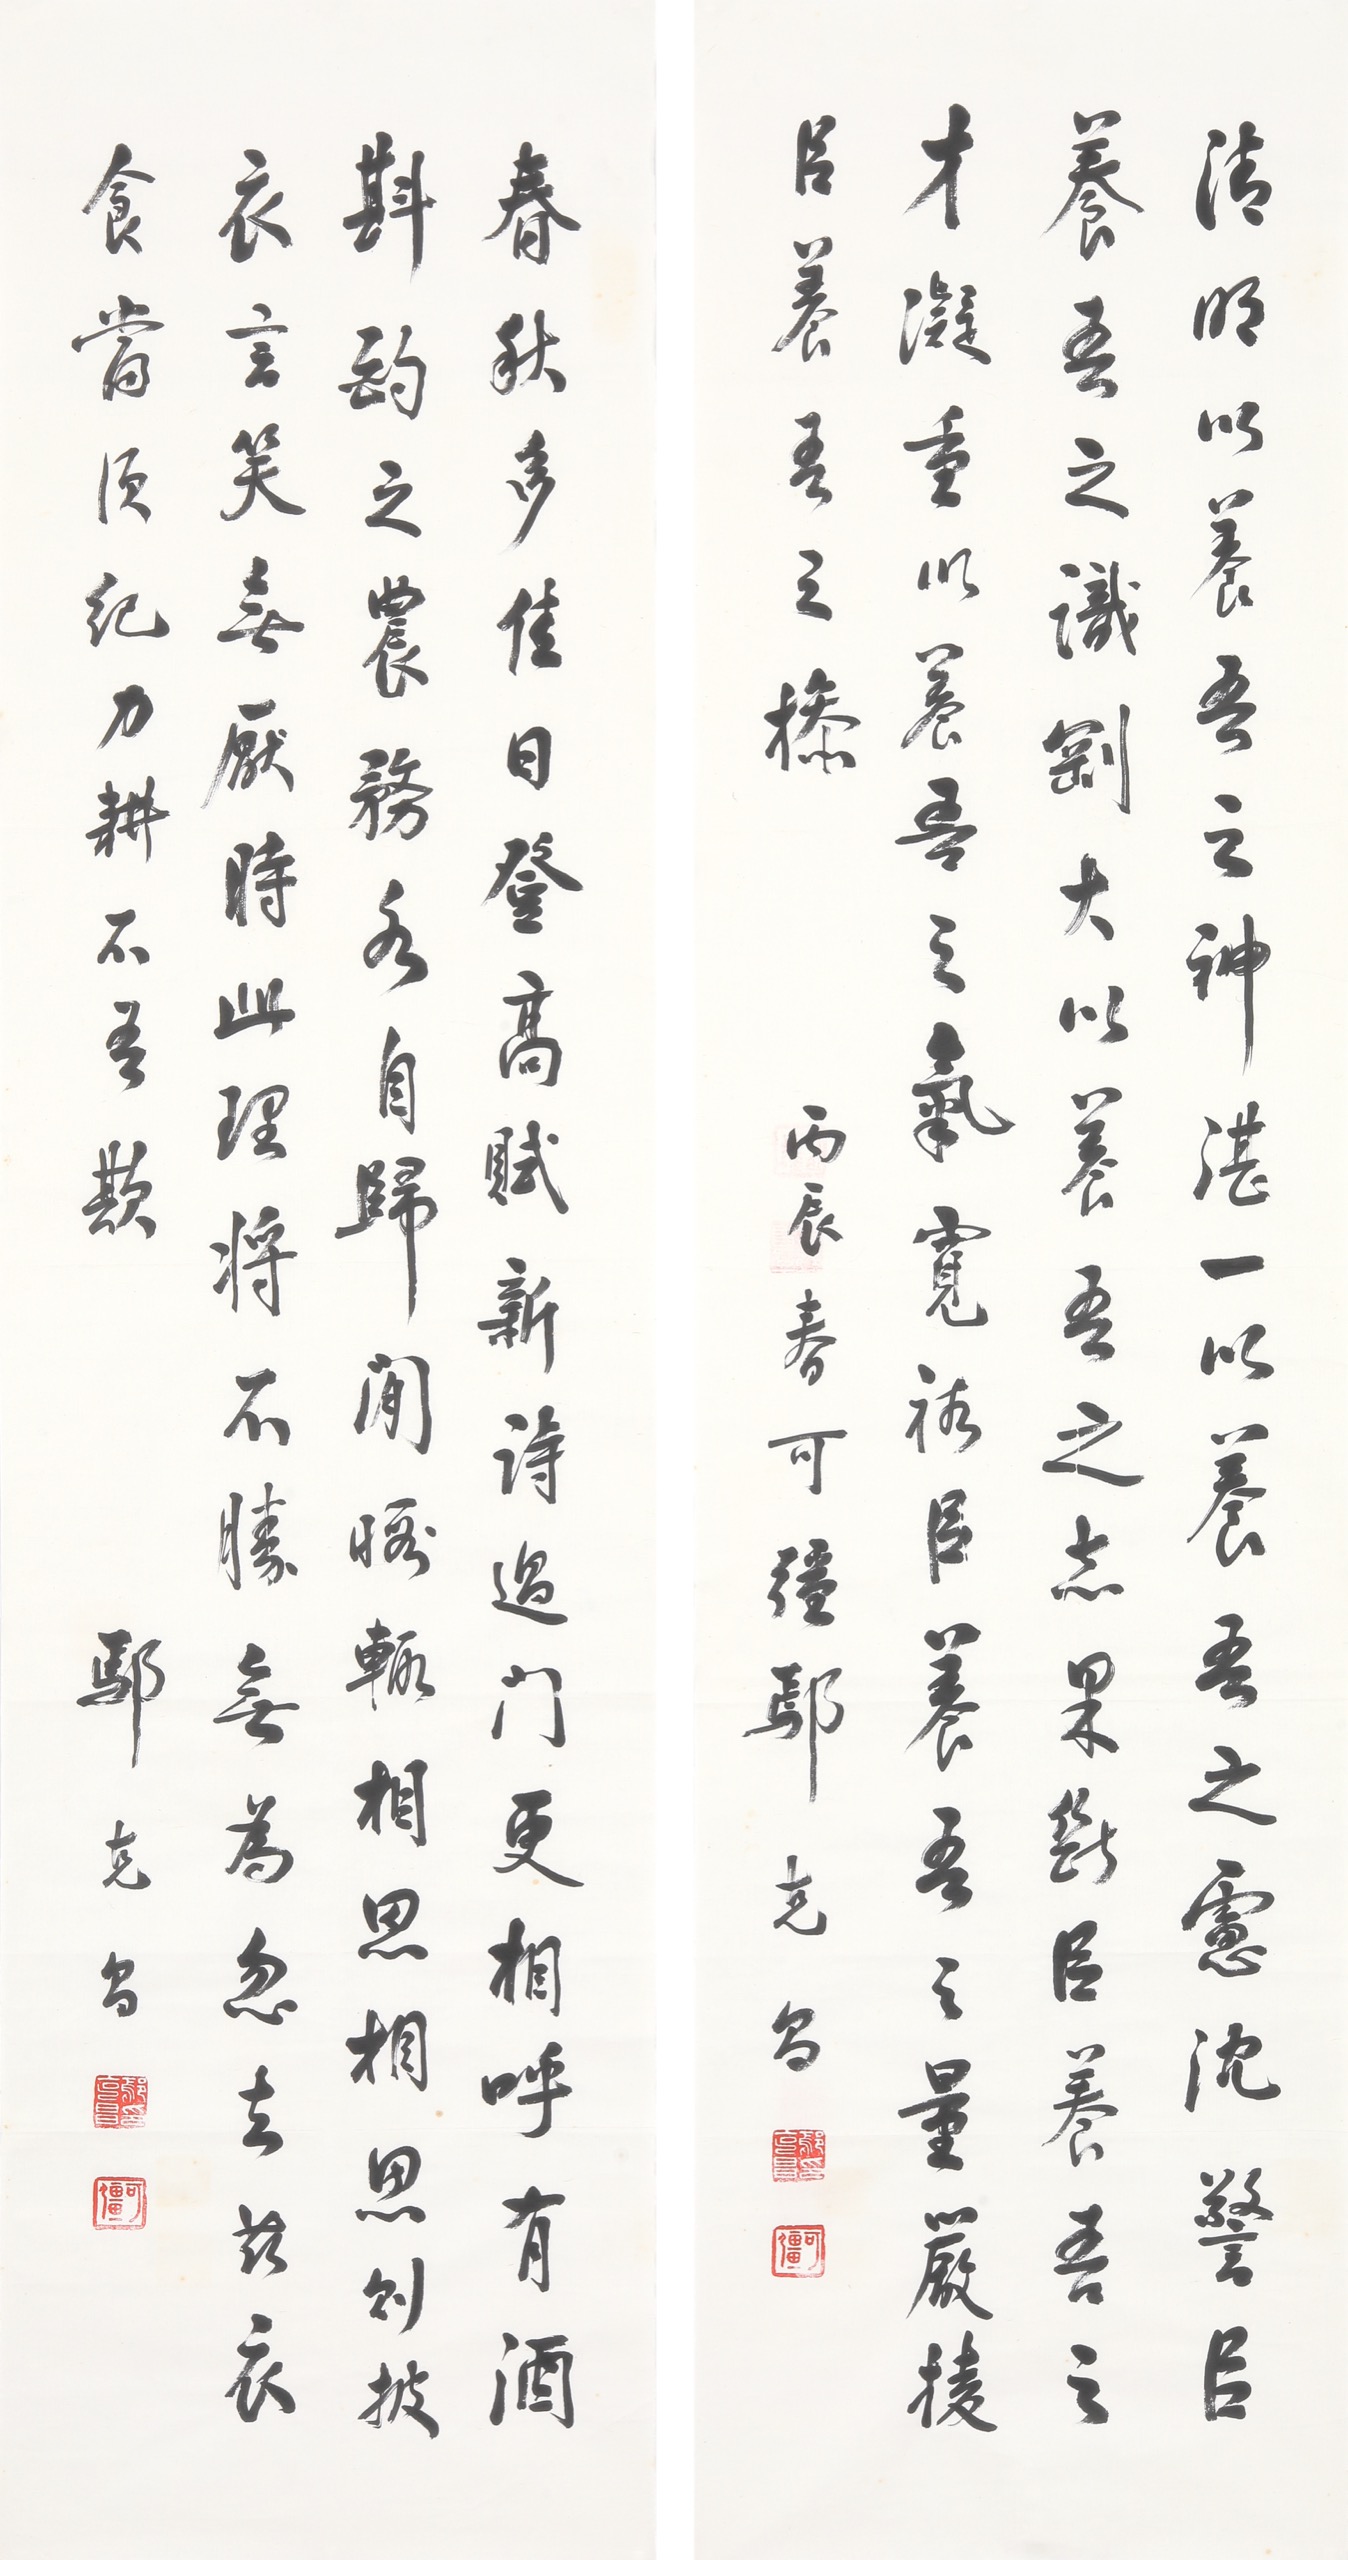 清明以養吾之神湛一以養吾之慮沈警㠯
養吾之識剛大以養吾之志果斷㠯養吾之
才凝重以養吾之氣寬裕㠯養吾之量嚴棱
㠯養吾之操
丙辰春可彊鄢克昌
春秋多佳日登高賦新詩過門更相呼有酒
斟酌之農務各自歸閒暇輒相思相思則披
衣言笑無厭時此理將不勝無為忽去茲衣
食當須紀力耕不吾欺
鄢克昌